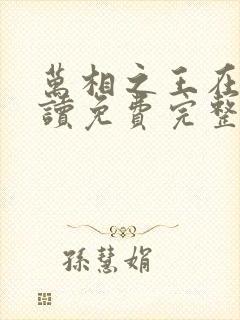 萬相之王在
讀免費完整
孫慧娟